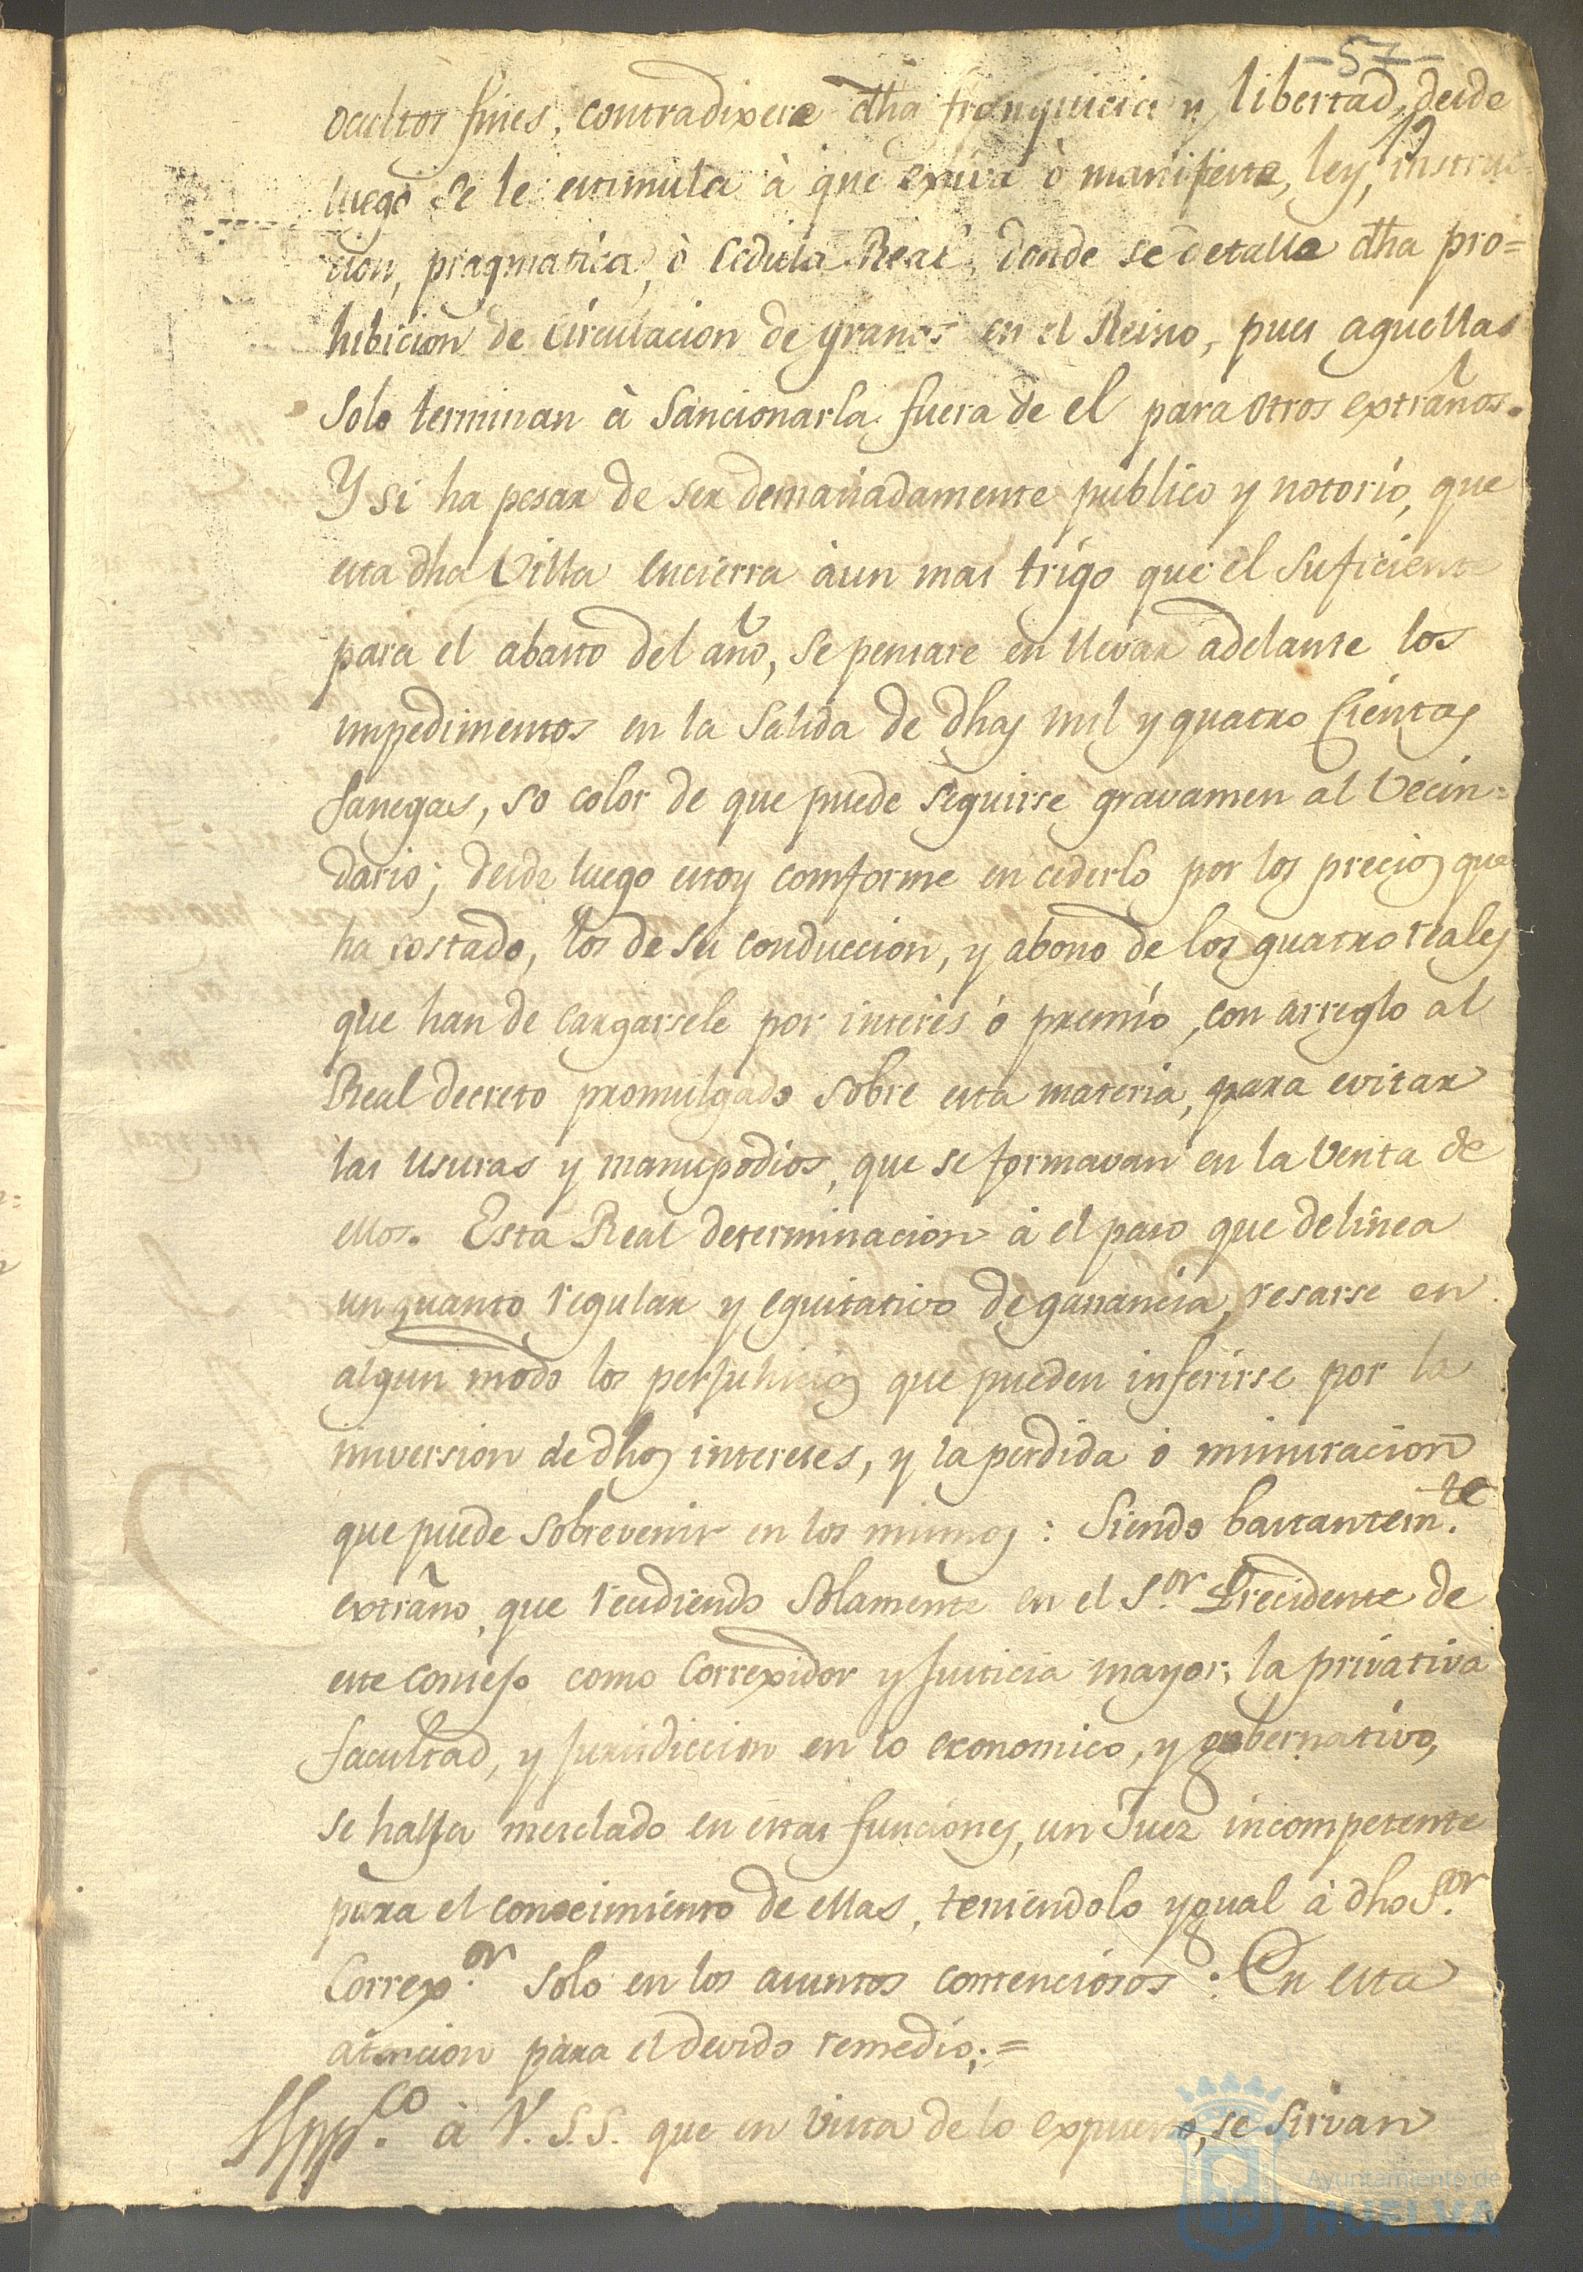 -57-
ocultos fines, contradixere dha franquicia y libertad, desde
luego se le estimula à que exiva ò manifieste, ley, instruc-
cion, pragmatica, ò Cedula Real, donde se detalla dha pro=
hibicion de Circulacion de granos en el Reino, pues aquellas
solo terminan à Sancionarla fuera de el para otros extraños.
Y si ha pesar de ser demasiadamente publico y notorio, que
esta dha Villa encierra àun mas trigo que el suficiente
para el abasto del año, se pensare en llevar adelante los
impedimentos en la Salida de dhas mil y quatro Cientas
fanegas, so color de que puede seguirse gravamen al Vecin=
dario; desde luego estoy comforme en cederlo por los precios que
ha costado, los de su conduccion, y abono de los quatro reales
que han de cargarsele por interes ó premio, con arreglo al
Real decreto promulgado sobre esta materia, para evitar
las usuras y manipodios, que se formavan en la Venta de
ellos. Esta Real determinacion à el paso que delinea
un quanto regular y equitativo de ganancia, resarse en
algun modo los perjuhicios que pueden inferirse por la
inversion de dhos intereses, y la perdida ò minuracion
que puede sobrevenir en los mismos: Siendo bastantem.te
extraño, que recidiendo solamente en el S.or Precidente de
este Consejo como Correxidor y Justicia mayor, la privativa
facultad, y Jurisdiccion en lo economico, y gobernativo,
se halla mesclado en estas funciones, un Juez incompetente
para el conocimiento de ellas, teniendolo ygual à dho S.or
Correx.or solo en los asuntos contenciosos: En esta
atencion para el devido remedio;=
Supp.co à V. S.S. que en vista de lo expuesto, se sirvan
Ayuntamiento de
HUELVA